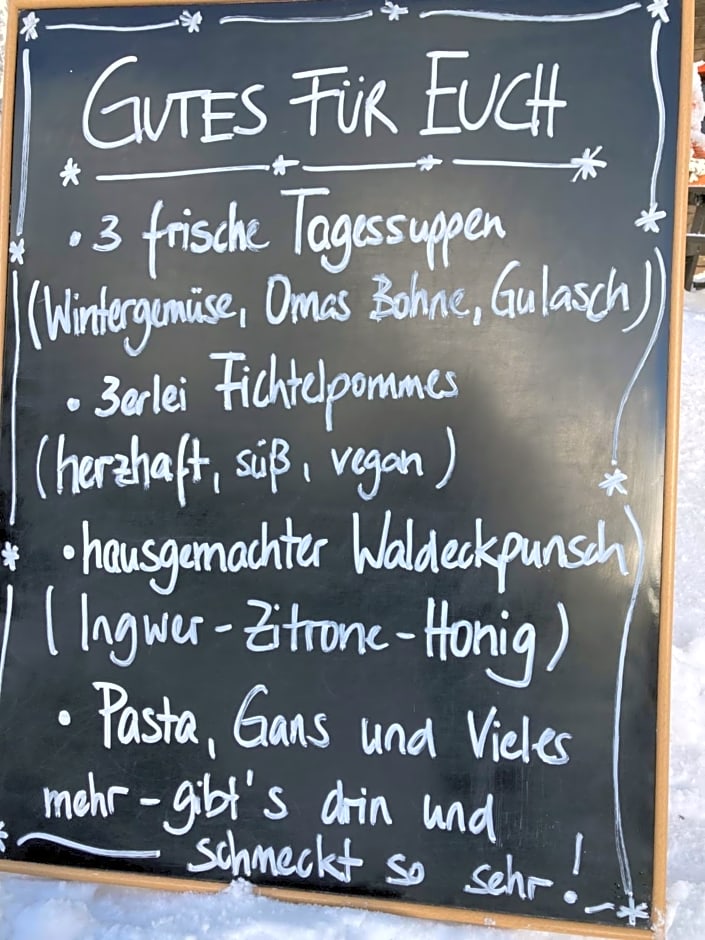 GUTES FÜR EUCH
• 3 frische Tagessuppen
(Wintergemüse, Omas Bohne, Gulasch)
• 3erlei Fichtelpommes
(herzhaft, süß, vegan)
• hausgemachter Waldeckpunsch
(Ingwer-Zitrone-Honig)
• Pasta, Gans und Vieles
mehr - gibt's drin und
schmeckt so sehr!